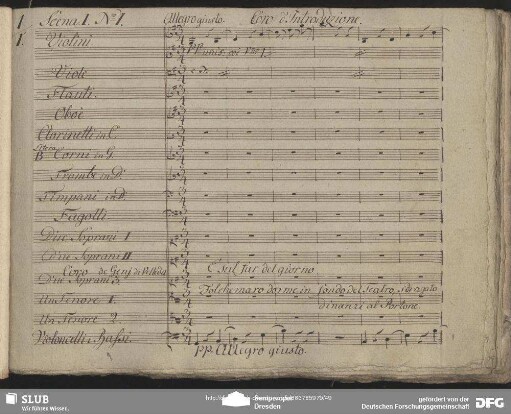 1. Scena I. No. 1. Allegro giusto. Coro d'Introduzione.
1. Violini
pp. unis. coi Vni I
Viole
Flauti.
Oboè
Clarinetti in C
B Corni in G
Trombe in D.
Timpani in D.
Fagotti
Due Soprani I
Due Soprani II
Coro de Genj
È sul far del giorno
Due Soprani 3.
dorme in fondo del Teatro
dinanzi al Portone.
Un Tenore I.
Un Tenore 2
Violoncelli e Bassi.
pp. Allegro giusto.
SLUB
Wir führen Wissen.
Semperoper
Dresden
gefördert von der
Deutschen Forschungsgemeinschaft
DFG